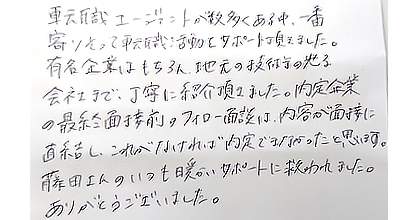 転職エージェントが数多くある中、一番
寄りそって転職活動をサポート頂きました。
有名企業はもちろん、地元の技術力の光る
会社まで、丁寧に紹介頂きました。内定企業
の最終面接前のフォロー面談は、内容が面接に
直結し、これがなければ内定できなかったと思います。
藤田さんのいつも暖かいサポートに救われました。
ありがとうございました。